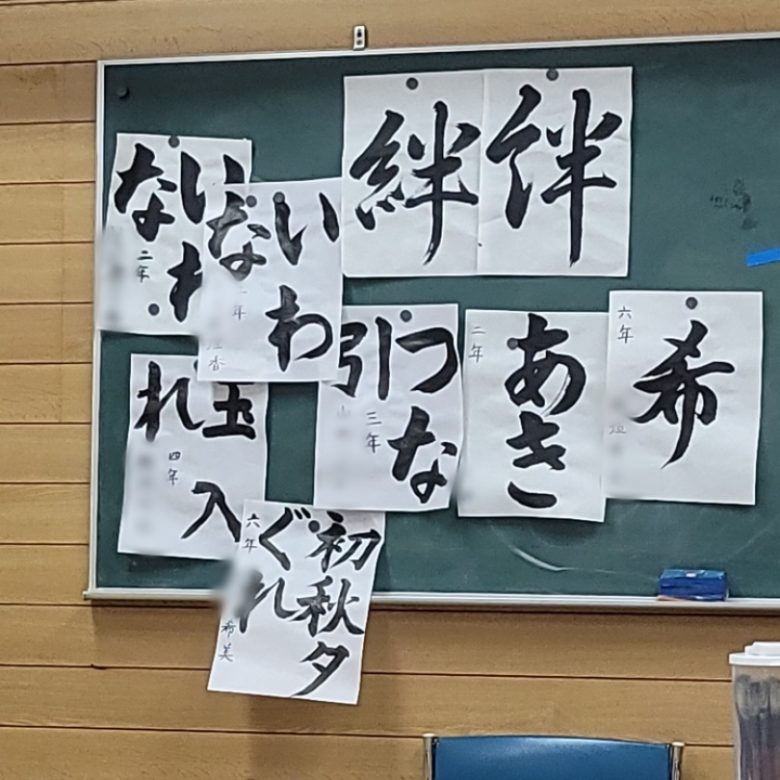 絆
絆
い
な
二年
いわ
な
年
つな
引
三年
あき
二年
希
六年
玉入
れ
四年
初秋夕
ぐれ
六年
希美